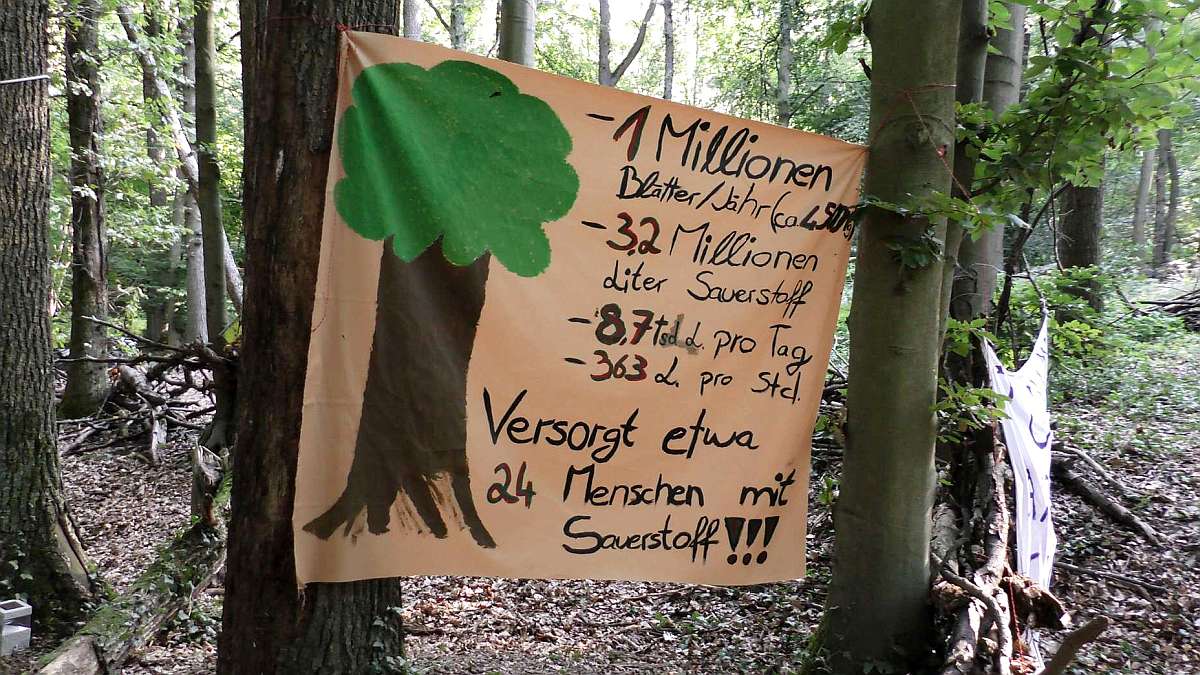 - 1 Millionen
Blätter/Jahr (ca.
- 3,2 Millionen
Liter Sauerstoff
- 8,7 tsd L. pro Tag
- 363 L. pro Std.
Versorgt etwa
24 Menschen mit
Sauerstoff!!!